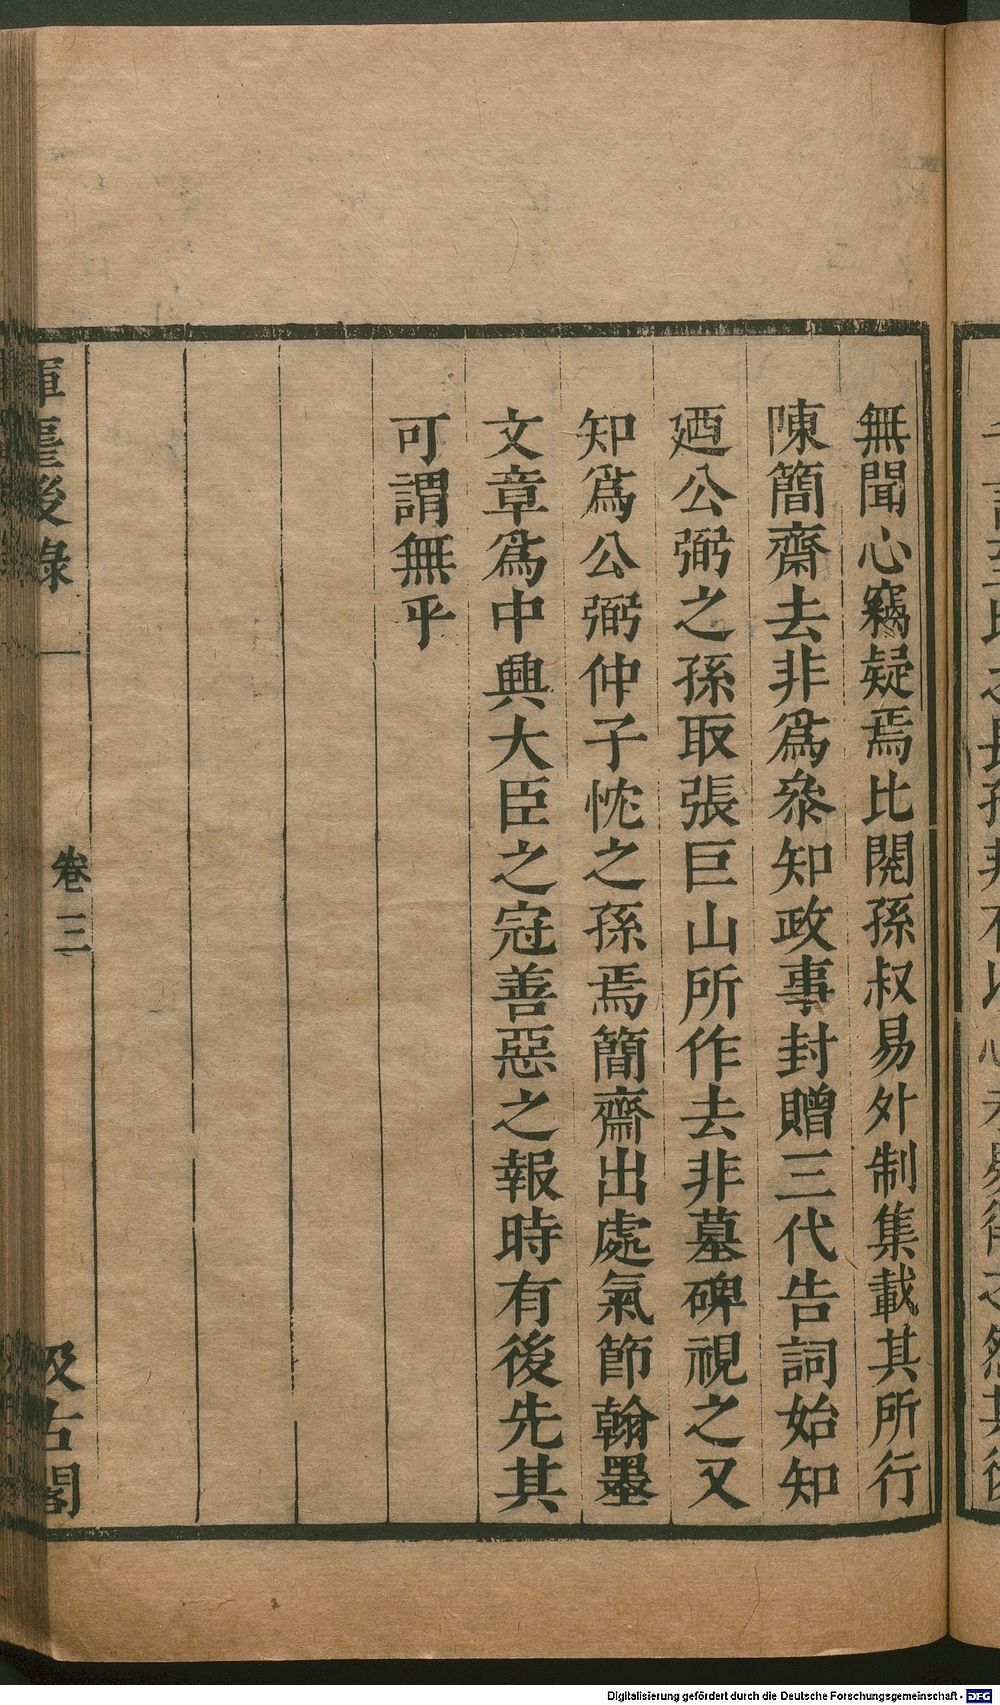 無聞心竊疑焉比閱孫叔易外制集載其所行
陳簡齋去非爲叅知政事封贈三代告詞始知
廼公弼之孫取張巨山所作去非墓碑視之又
知爲公弼仲子忱之孫焉簡齋出處氣節翰墨
文章爲中興大臣之冠善惡之報時有後先其
可謂無乎
揮麈後錄 卷三 汲古閣
Digitalisierung gefördert durch die Deutsche Forschungsgemeinschaft - DFG